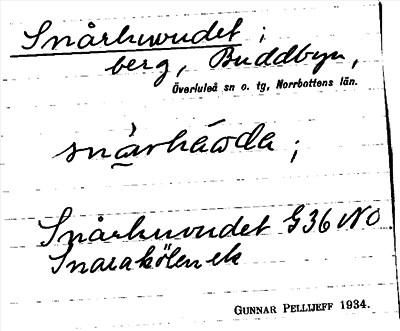 Snårhuvudet ;
berg, Buddbyn,
Överluleå sn o. tg, Norrbottens län.
snårhåvda ;
Snårhuvudet G36 NO
Snarakölen ek
GUNNAR PELLIJEFF 1934.